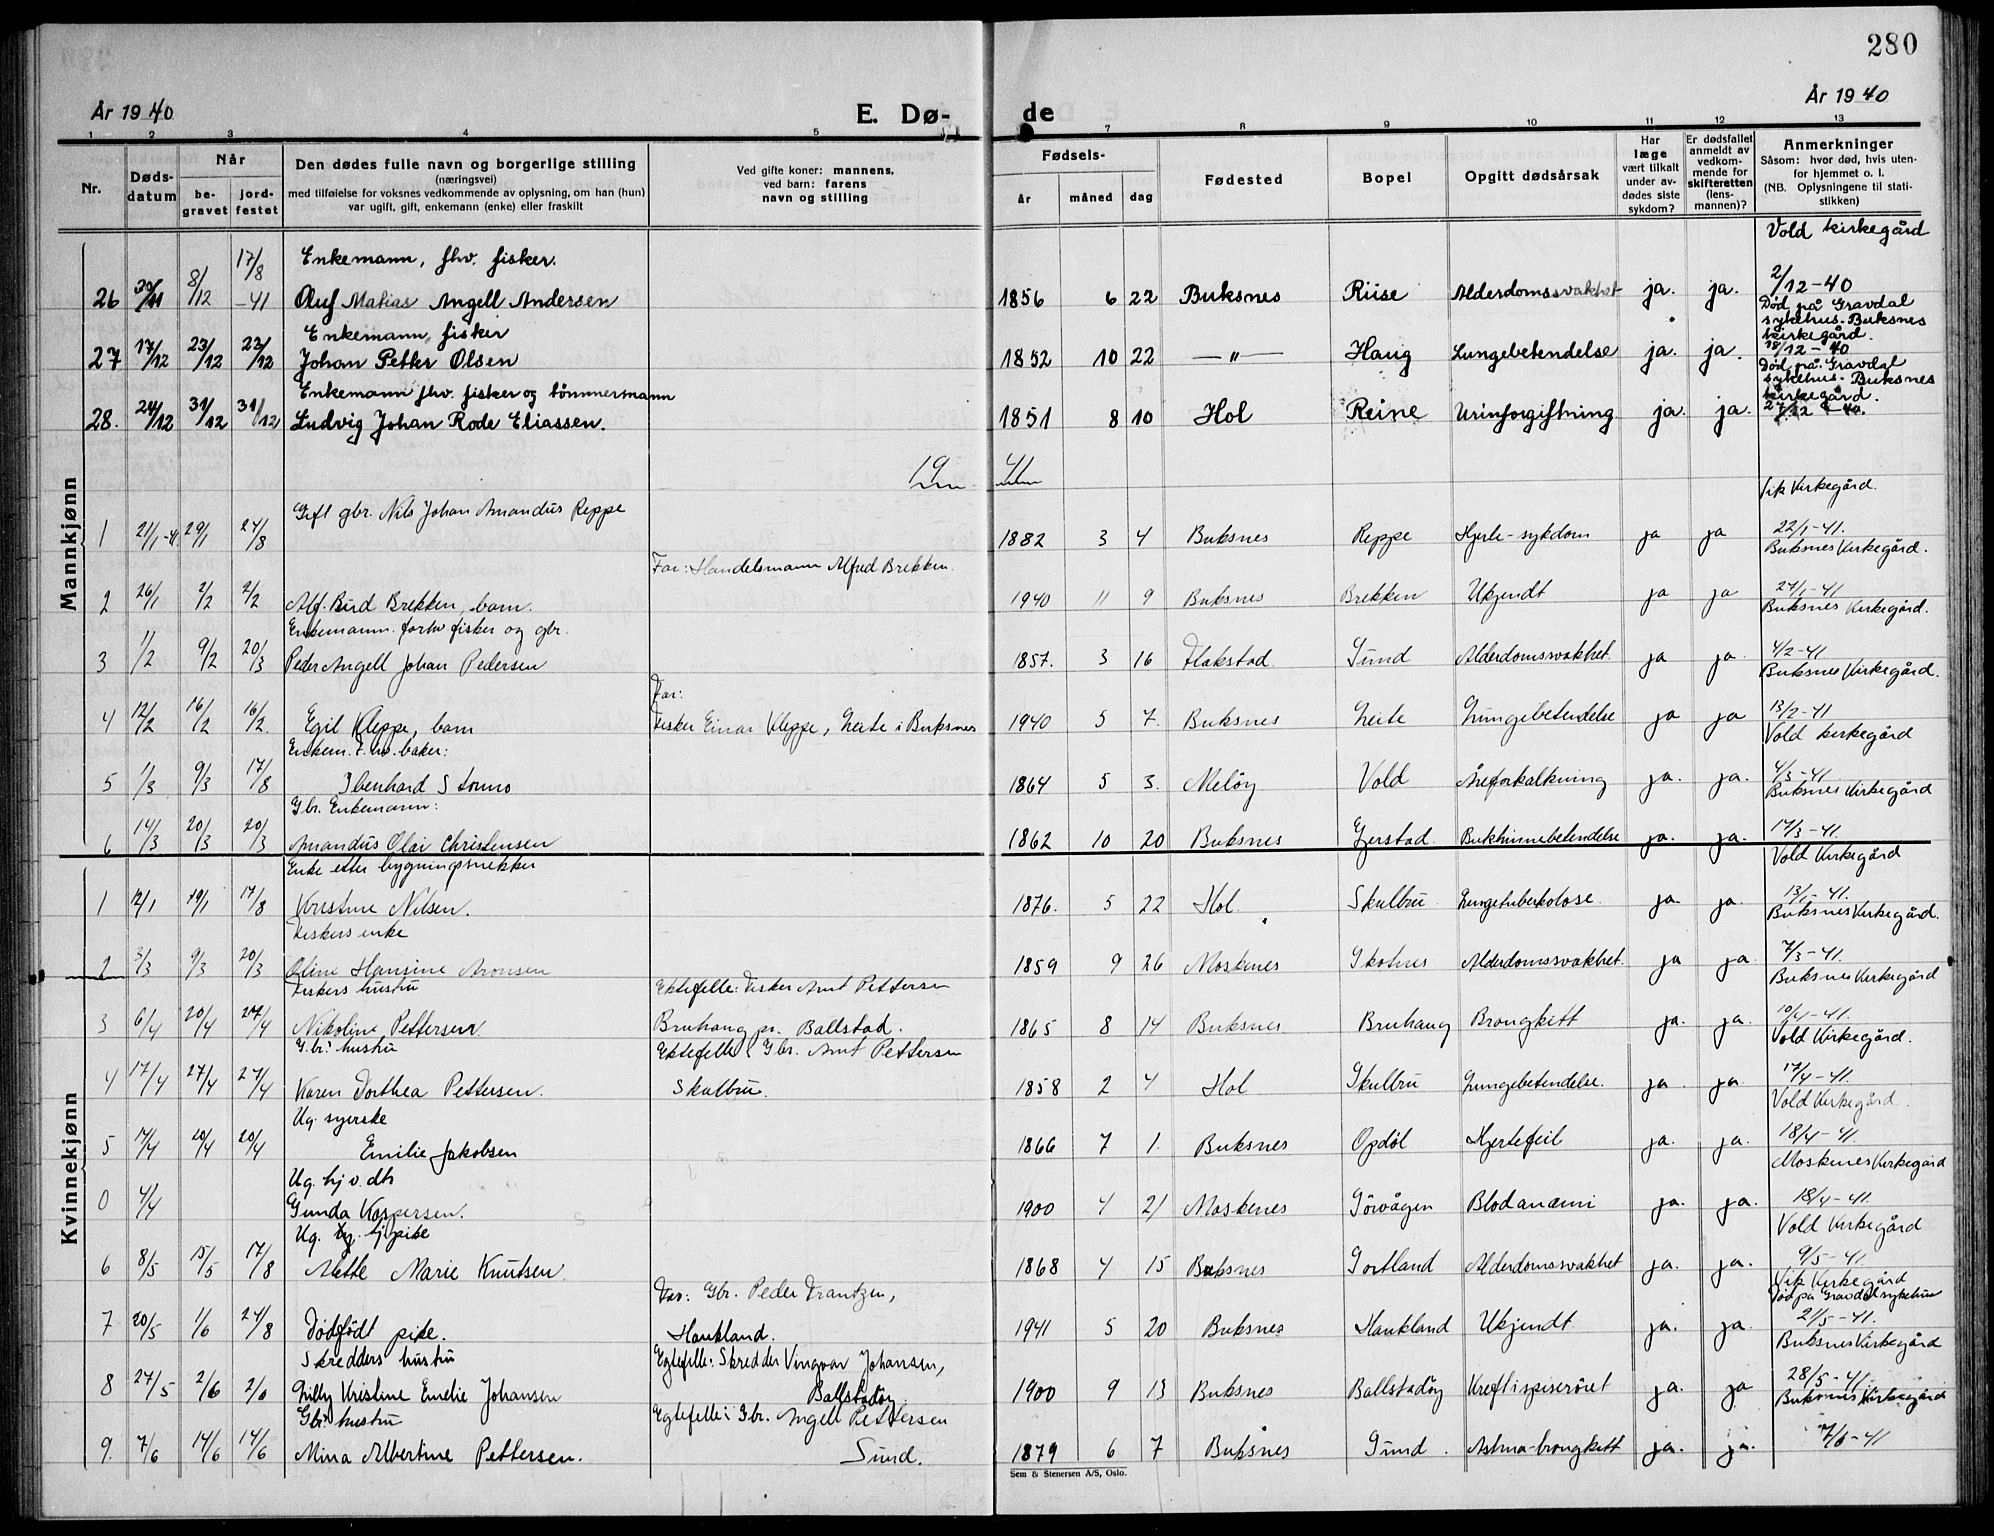 280
År 1940
E. Dø-
de
År 1940
1 2 3 4 5 7 8 9 10 11 12 13
Nr.
Døds-
datum
Når
be-
gravet
jord-
festet
Den dødes fulle navn og borgerlige stilling
(næringsvei)
med tilføielse for voksnes vedkommende av oplysning, om han (hun)
var ugift, gift, enkemann (enke) eller fraskilt
Ved gifte koner: mannens,
ved barn: farens
navn og stilling
Fødsels-
år måned dag
Fødested
Bopel
Opgitt dødsårsak
Har
læge
vært tilkalt
under av-
dødes siste
sykdom?
Er dødsfallet
anmeldt av
vedkom-
mende for
skifteretten
(lens-
mannen)?
Anmerkninger
Såsom: hvor død, hvis uten-
for hjemmet o. l.
(NB. Oplysningene til stati-
stikken)
Mannkjønn
Vold kirkegård
Enkemann, fhv. fisker.
26 30/11 8/12 17/8-41 Oluf Matias Angell Andersen 1856 6 22 Buksnes Riise Alderdomssvakhet ja. ja. 2/12-40
Død på Gravdal
sykehus. Buksnes
kirkegård.
Enkemann, fisker
27 17/12 23/12 23/12 Johan Petter Olsen 1852 10 22 —"— Haug Lungebetendelse ja. ja. 18/12-40
Død på Gravdal
sykehus. Buksnes
kirkegård.
Enkemann fhv. fisker og tømmermann
28. 24/12 31/12 31/12 Ludvig Johan Rode Eliassen. 1851 8 10 Hol Reine Urinforgiftning ja. ja. 27/12-40.
19 41
Vik Kirkegård.
Gift gbr. Nils Johan Amandus Reppe
1 21/1-41. 29/1 24/8 1882 3 4 Buksnes Reppe Hjerte-sykdom ja ja 22/1-41.
Buksnes Kirkegård.
Far: Handelsmann Alfred Brekken.
2 26/1 2/2 2/2 Alf. Bud Brekken, barn. 1940 11 9 Buksnes Brekken Ukjendt ja ja 27/1-41
Buksnes Kirkegård.
Enkemann. forhv fisker og gbr.
3 1/2 9/2 20/3 Peder Angell Johan Pedersen 1857. 3 16 Flakstad Sund Alderdomssvakhet. ja ja 4/2-41
Buksnes Kirkegård.
Far:
4 12/2 16/2 16/2. Egil Kleppe, barn Fisker Einar Kleppe, Leite i Buksnes 1940 5 7. Buksnes Leite Lungebetendelse ja ja 13/2-41
Vold kirkegård
Enkem. f.hv. baker:
5 1/3 9/3 17/8 Ibenhard Stormo 1864 5 3. Meløy Vold Åreforkalkning ja. ja. 4/3-41
Buksnes Kirkegård
Gbr. Enkemann:
6 14/3 20/3 20/3 Amandus Olai Christensen 1862 10 20 Buksnes Gjerstad Bukhinnebetendelse ja. ja. 17/3-41.
Kvinnekjønn
Vold Kirkegård
Enke etter bygningsnekker
1 12/1 19/1 17/8 Kristine Nilsen. 1876. 5 22 Hol. Skulbru Lungetuberkolose. ja. ja. 13/1-41.
Buksnes Kirkegård.
Fiskers enke
2 3/3 9/3 20/3 Oline Hansine Aronsen 1859 9 26 Moskenes Skotnes Alderdomssvakhet. ja ja. 7/3-41.
Buksnes Kirkegård
Fiskers hustru Ektefelle: Fisker Arnt Pettersen
3 6/4 20/4 27/4 Nikoline Pettersen Bruhaug pr. Ballstad. 1865 8 14 Buksnes Bruhaug Brongkitt ja. ja. 10/4-41.
Vold Kirkegård.
G.brs hustru Ektefelle: Gbr. Arnt Pettersen
4 17/4 27/4 27/4 Karen Dorthea Pettersen. Skulbru. 1858 2 4 Hol Skulbru Lungebetendelse. ja. ja. 17/4-41.
Vold Kirkegård.
Ug. syerske
5 17/4 20/4 20/4 Emilie Jakobsen 1866 7 1. Buksnes Opdøl Hjertefeil ja. ja. 18/4-41
Moskenes Kirkegård
Ug. hj.v. dtr
0 4/4 Gunda Kaspersen. 1900 4 21 Moskenes Sørvågen Blodanæmi ja. ja. 18/4-41.
Vold Kirkegård
Ug. tj. pike
6 8/5 15/5 17/8 Mette Marie Knutsen. 1868 4 15 Buksnes Sortland Alderdomssvakhet ja. ja. 9/5-41.
Vik Kirkegård
Død på Gravdal sykehus
Far: Gbr. Peder Frantzen,
7 20/5 1/6 24/8 Dødfødt pike. Haukland. 1941 5 20 Buksnes Haukland Ukjendt. ja. ja. 21/5-41.
Buksnes Kirkegård
Skredders hustru Egtefelle: Skredder Yngvar Johansen,
8 27/5 2/6 2/6 Lilly Kristine Emelie Johansen Ballstadøy 1900 9 13 Buksnes Ballstadøy Kreft i spiserøret ja. ja 28/5-41.
Buksnes Kirkegård
Gbrs hustru Egtefelle: Gbr. Angell Pettersen
9. 7/6 14/6 14/6 Mina Albertine Pettersen. Sund. 1879 6 7 Buksnes Sund. Astma-brongkitt ja. ja. 7/6-41
Sem & Stenersen A/S, Oslo.